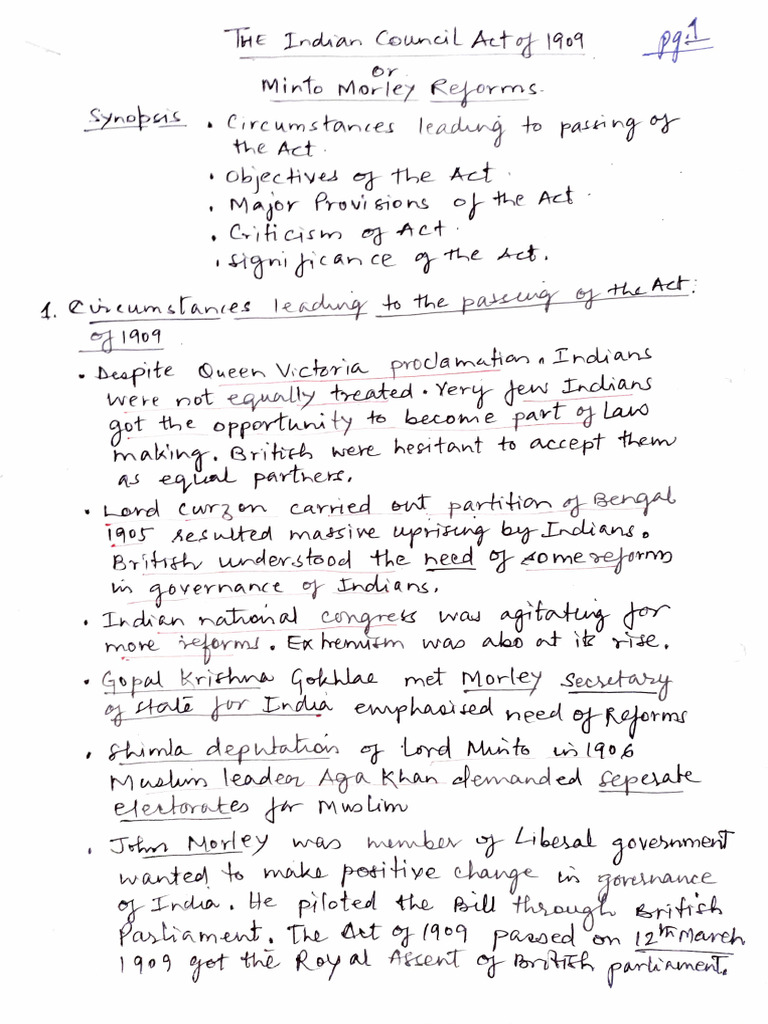 THE Indian Council Act of 1909
pg.1
or
Minto Morley Reforms.
Synopsis • Circumstances leading to passing of
the Act.
• Objectives of the Act.
• Major Provisions of the Act.
• Criticism of Act.
• Significance of the Act.
1. Circumstances leading to the passing of the Act:
of 1909
• Despite Queen Victoria proclamation, Indians
were not equally treated. Very few Indians
got the opportunity to become part of Law
making. British were hesitant to accept them
as equal partners.
• Lord Curzon carried out partition of Bengal
1905 resulted massive uprising by Indians.
British understood the need of some reforms
in governance of Indians.
• Indian national congress was agitating for
more reforms. Extremism was also at its rise.
• Gopal Krishna Gokhlae met Morley Secretary
of state for India emphasised need of Reforms
• Shimla deputation of Lord Minto in 1906
Muslim leader Aga Khan demanded seperate
electorates for Muslim
• John Morley was member of Liberal government
wanted to make positive change in governance
of India. He piloted the Bill through British
Parliament. The Act of 1909 passed on 12th March
1909 got the Royal Assent of British parliament.